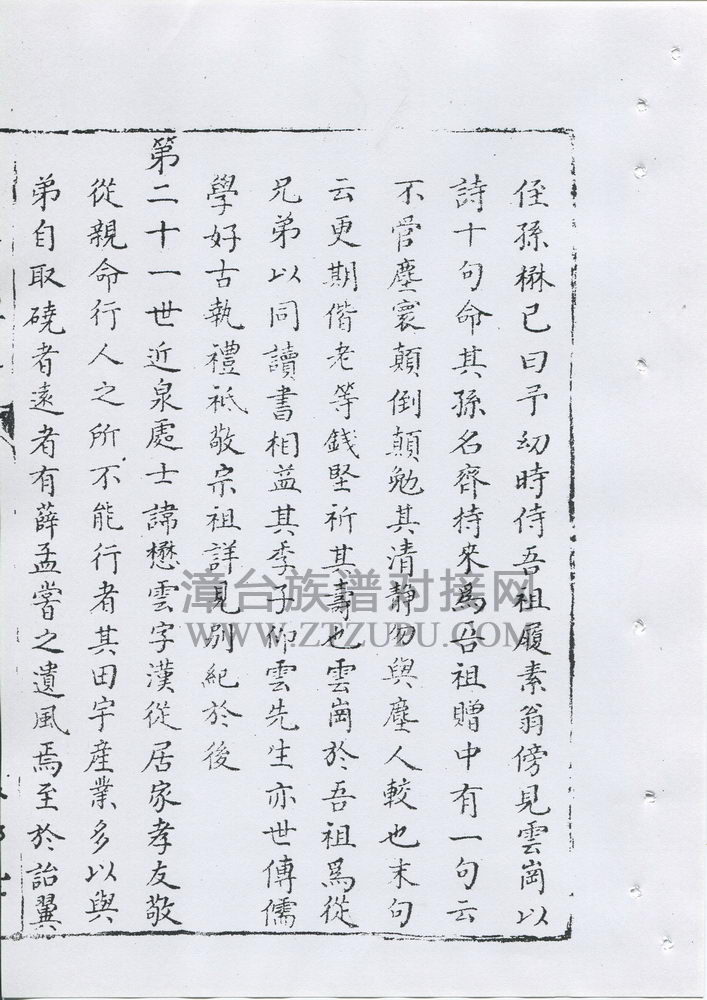 侄孫楙已曰予幼時侍吾祖履素翁傍見雲崗以
詩十句命其孫名齊持來爲吾祖贈中有一句云
不管塵寰顛倒顛勉其清靜勿與塵人較也末句
云更期偕老等錢堅祈其壽也雲崗於吾祖爲從
兄弟以同讀書相益其季子仰雲先生亦世傳儒
學好古執禮祗敬宗祖詳見別紀於後
第二十一世近泉處士諱懋雲字漢從居家孝友敬
從親命行人之所不能行者其田宇產業多以與
弟自取磽者遠者有薛孟嘗之遺風焉至於詒翼
漳台族谱对接网
WWW.ZTZUPU.COM